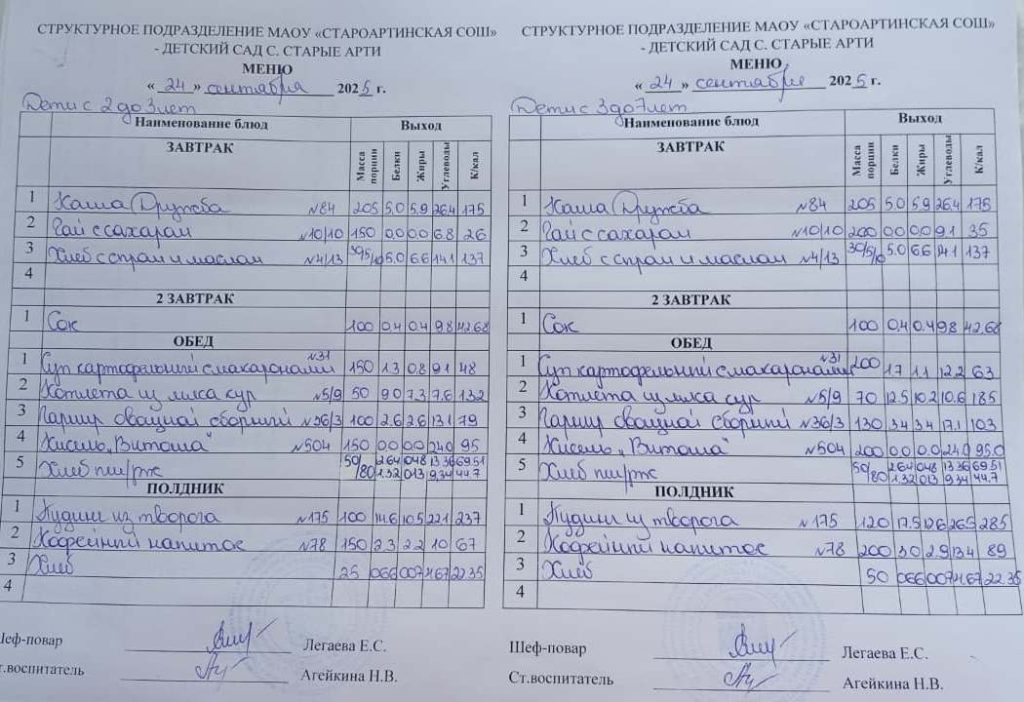 СТРУКТУРНОЕ ПОДРАЗДЕЛЕНИЕ МАОУ «СТАРОАРТИНСКАЯ СОШ»
- ДЕТСКИЙ САД С. СТАРЫЕ АРТИ
МЕНЮ
« 24 » сентября 2025 г.
Дети с 2 до 3 лет
Наименование блюд Выход
ЗАВТРАК Масса порции Белки Жиры Углеводы К/кал
1 Каша Дружба №84 205 5,0 5,9 26,4 175
2 Чай с сахаром №10/10 150 0,0 0,0 6,8 26
3 Хлеб с сыром и маслом №4/13 30/5/10 5,0 6,6 14,1 137
4
2 ЗАВТРАК
1 Сок 100 0,4 0,4 9,8 42,68
ОБЕД
1 Суп картофельный с макаронами №31 150 1,3 0,8 9,1 48
2 Котлета из мяса кур №5/9 50 9,0 7,3 7,6 132
3 Гарнир овощной сборный №36/3 100 2,6 2,6 13,1 79
4 Кисель „Витоша" №504 150 0,0 0,0 24,0 95
5 Хлеб пш/рж 50/80 2,64 0,48 13,36 69,51
1,32 0,13 9,34 44,7
ПОЛДНИК
1 Пудинг из творога №175 100 14,6 10,5 22,1 237
2 Кофейный напиток №78 150 2,3 2,2 10 67
3 Хлеб 25 0,66 0,07 4,67 22,35
4
Шеф-повар Легаева Е.С.
Ст.воспитатель Агейкина Н.В.
СТРУКТУРНОЕ ПОДРАЗДЕЛЕНИЕ МАОУ «СТАРОАРТИНСКАЯ СОШ»
- ДЕТСКИЙ САД С. СТАРЫЕ АРТИ
МЕНЮ
« 24 » сентября 2025 г.
Дети с 3 до 7 лет
Наименование блюд Выход
ЗАВТРАК Масса порции Белки Жиры Углеводы К/кал
1 Каша Дружба №84 205 5,0 5,9 26,4 175
2 Чай с сахаром №10/10 200 0,0 0,0 9,1 35
3 Хлеб с сыром и маслом №4/13 30/5/10 5,0 6,6 14,1 137
4
2 ЗАВТРАК
1 Сок 100 0,4 0,4 9,8 42,68
ОБЕД
1 Суп картофельный с макаронами №31 200 1,7 1,1 12,2 63
2 Котлета из мяса кур №5/9 70 12,5 10,2 10,6 185
3 Гарнир овощной сборный №36/3 130 3,4 3,4 17,1 103
4 Кисель „Витоша" №504 200 0,0 0,0 24,0 95,0
5 Хлеб пш/рж 50/80 2,64 0,48 13,36 69,51
1,32 0,13 9,34 44,7
ПОЛДНИК
1 Пудинг из творога №175 120 17,5 12,6 26,5 285
2 Кофейный напиток №78 200 3,0 2,9 13,4 89
3 Хлеб 50 0,66 0,07 4,67 22,35
4
Шеф-повар Легаева Е.С.
Ст.воспитатель Агейкина Н.В.